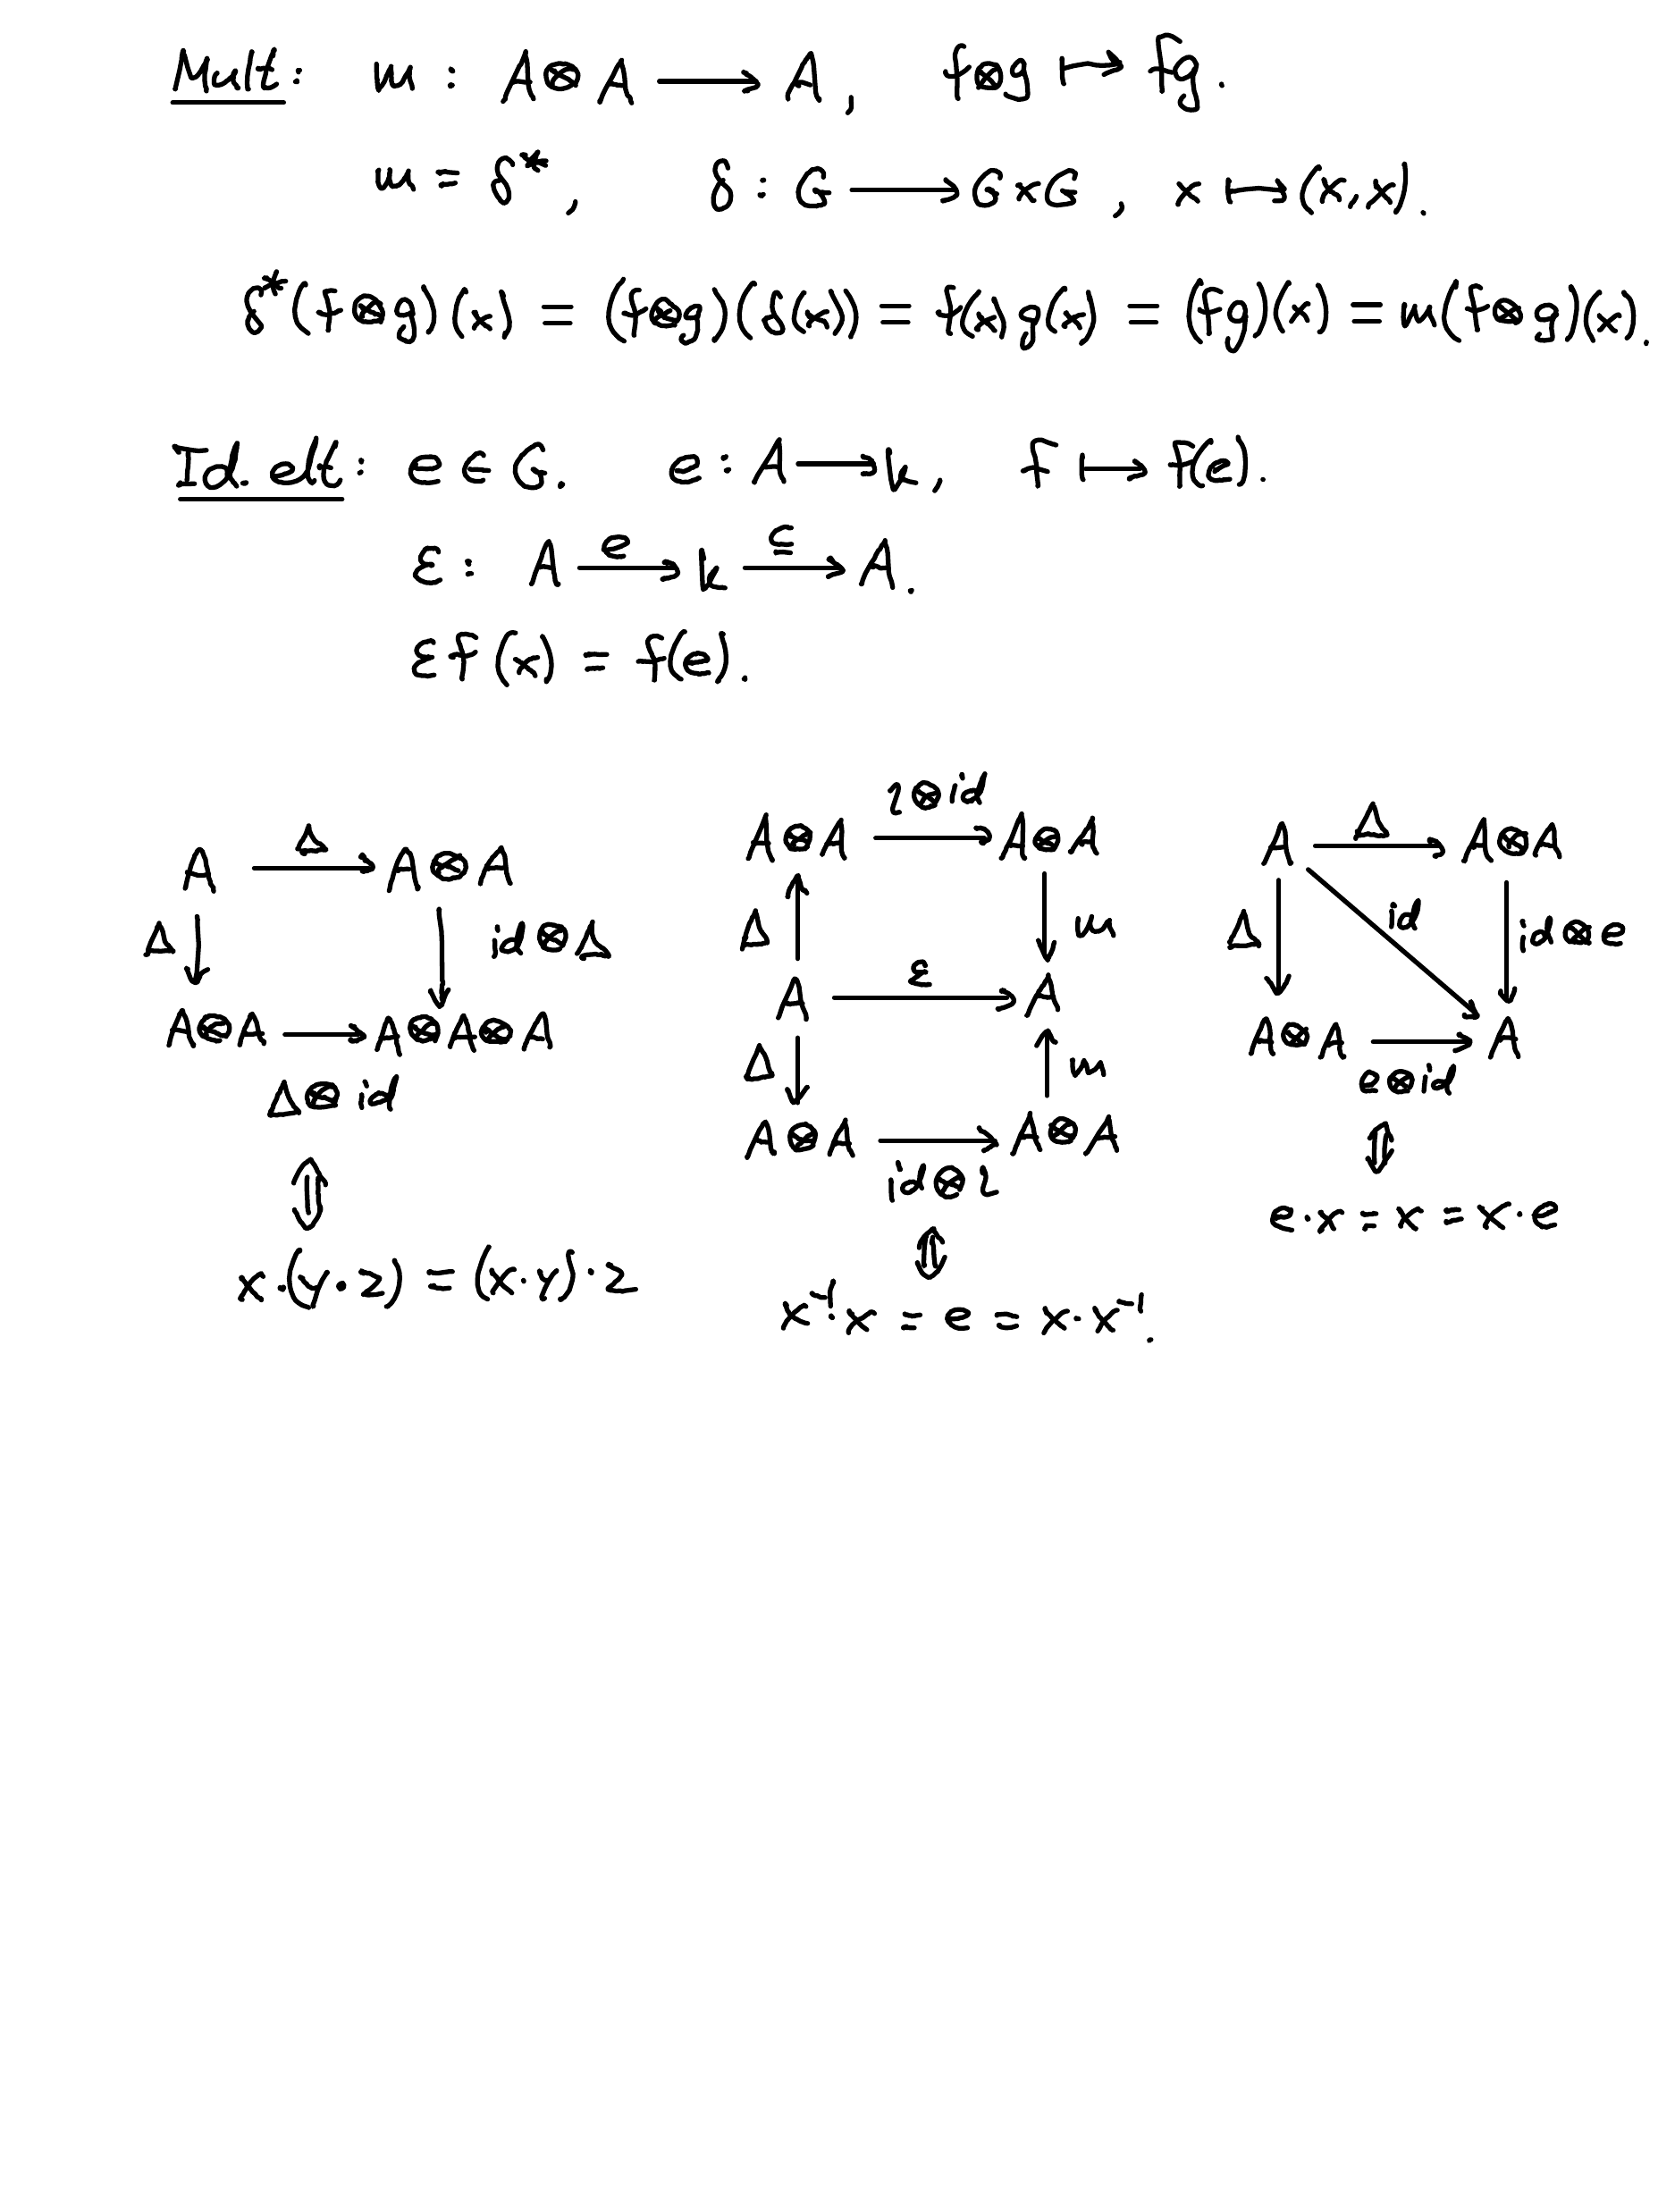 Mult: m : A⊗A ⟶ A, f⊗g ⟼ fg.
m = δ*, δ : G ⟶ G×G, x ⟼ (x,x).
δ*(f⊗g)(x) = (f⊗g)(δ(x)) = f(x)g(x) = (fg)(x) = m(f⊗g)(x).
Id. elt: e ∈ G. e : A ⟶ k, f ⟼ f(e).
ε : A ⟶ k ⟶ A.
e ⊆
εf(x) = f(e).
A ⟶ A⊗A
Δ
Δ ↓ ↓ id⊗Δ
A⊗A ⟶ A⊗A⊗A
Δ⊗id
⇕
x·(y·z) = (x·y)·z
ι⊗id
A⊗A ⟶ A⊗A
Δ ↑ ↓ m
ε
A ⟶ A
Δ ↓ ↑ m
A⊗A ⟶ A⊗A
id⊗ι
⇕
x⁻¹·x = e = x·x⁻¹.
Δ
A ⟶ A⊗A
Δ ↓ id ↓ id⊗e
A⊗A ⟶ A
e⊗id
⇕
e·x = x = x·e